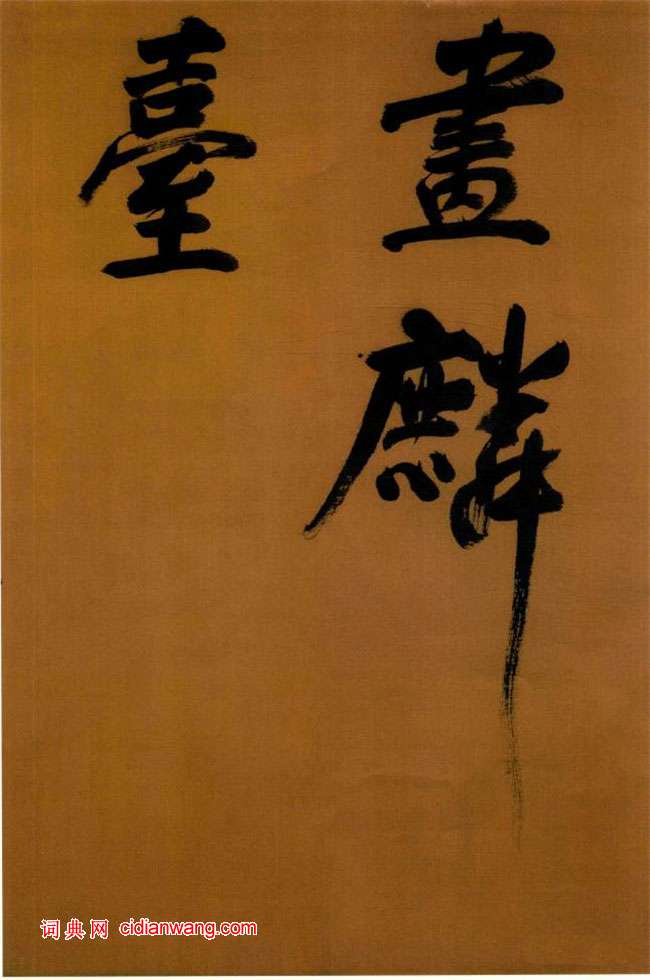 畫麟
臺
词典网 cidianwang.com